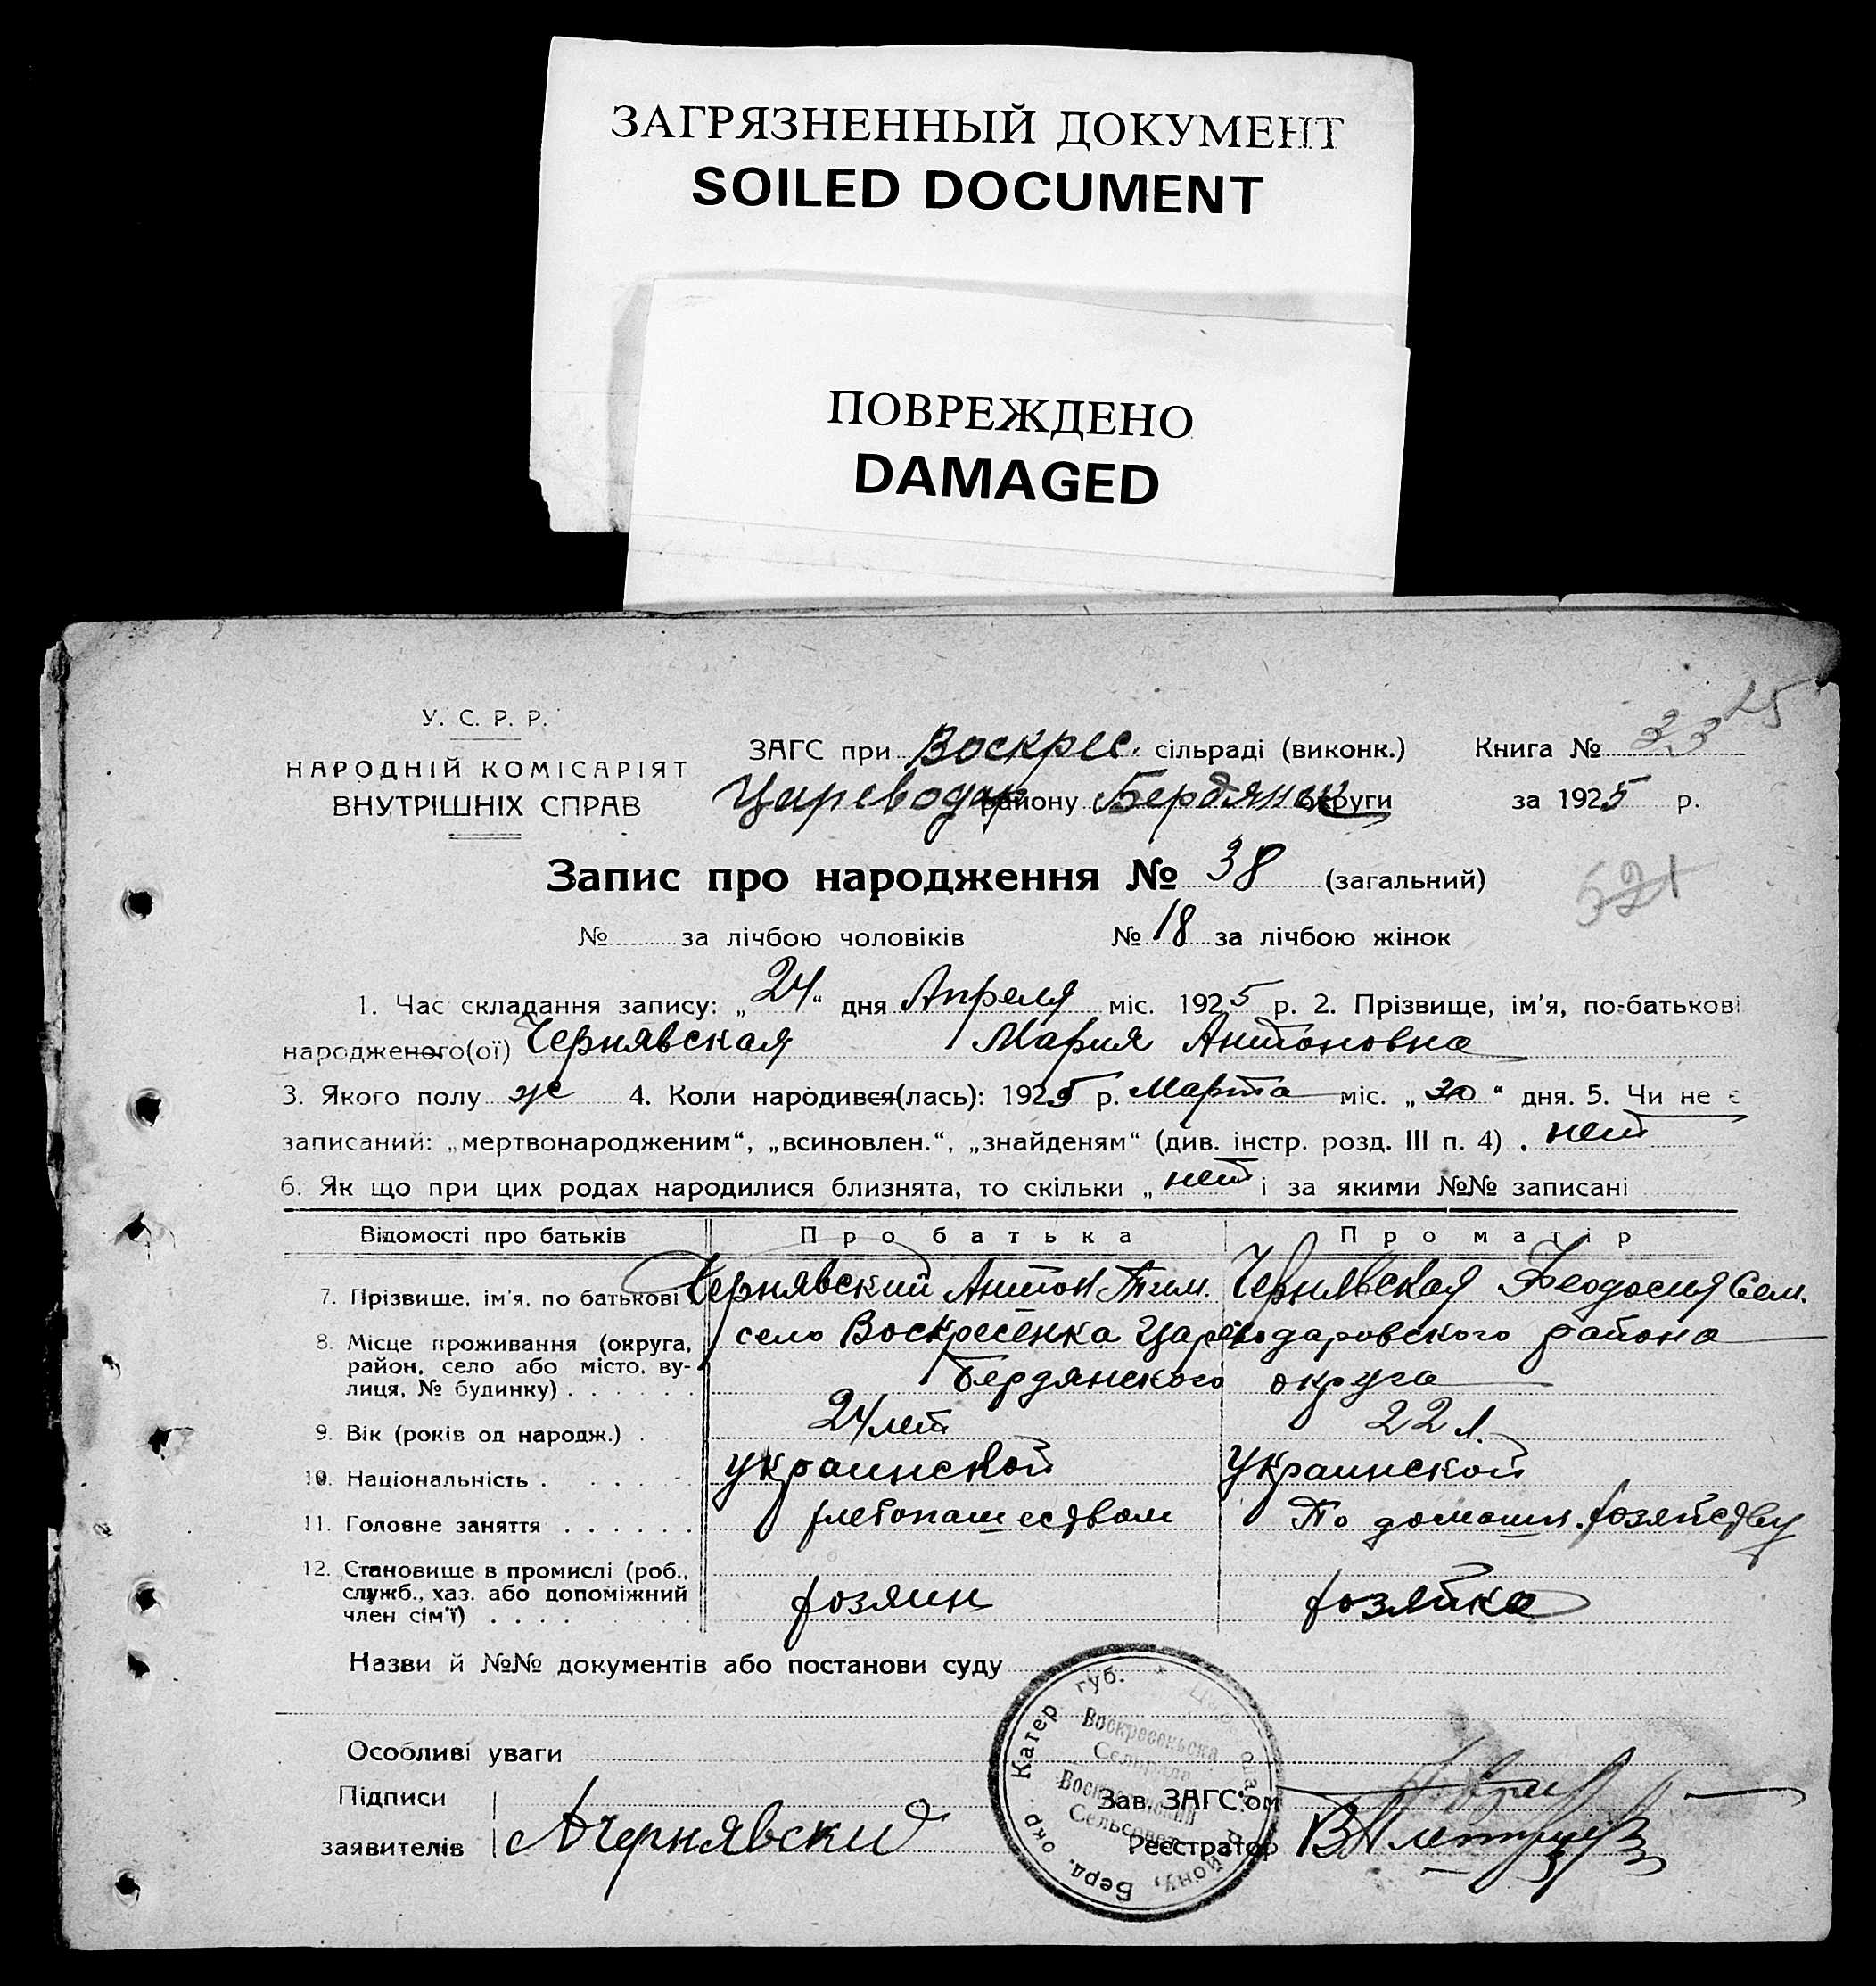 ЗАГРЯЗНЕННЫЙ ДОКУМЕНТ
SOILED DOCUMENT
ПОВРЕЖДЕНО
DAMAGED
25
У. С. Р. Р.
НАРОДНІЙ КОМІСАРІЯТ
ВНУТРІШНІХ СПРАВ
ЗАГС при Воскрес. сільраді (виконк.) Книга № 33
Цареводар району Бердянск округи за 1925 р.
Запис про народження № 38 (загальний)
521
№ за лічбою чоловіків № 18 за лічбою жінок
1. Час складання запису: „24“ дня Апреля міс. 1925 р. 2. Прізвище, ім'я, по-батькові
народженого(ої) Чернявская Мария Антоновна
3. Якого полу ж 4. Коли народився(лась): 1925 р. Марта міс. „30“ дня. 5. Чи не є
записаний: „мертвонародженим“, „всиновлен.“, „знайденям“ (див. інстр. розд. III п. 4) . нет
6. Як що при цих родах народилися близнята, то скільки „нет і за якими №№ записані
Відомості про батьків Про батька Про матір
7. Прізвище, ім'я, по батькові Чернявский Антон Тим. Чернявская Феодосия Сем.
8. Місце проживання (округа, район, село або місто, вулиця, № будинку) . . . . . . село Воскресенка Цареводаровского района
Бердянского округа
9. Вік (років од народж.) . 24 лет 22 л.
10. Національність . . . . . украинской украинской
11. Головне заняття . . . . . . хлебопашеством По домашн. хозяйству
12. Становище в промислі (роб., служб., хаз. або допоміжний член сім'ї) . . . . хозяин хозяйка
Назви й №№ документів або постанови суду
Особливі уваги
Підписи
заявителів АЧернявский
Зав. ЗАГС'ом
Реєстратор
Берд. окр. Катер. губ.
Воскресенська
Сельрада
Воскресенский
Сельсовет